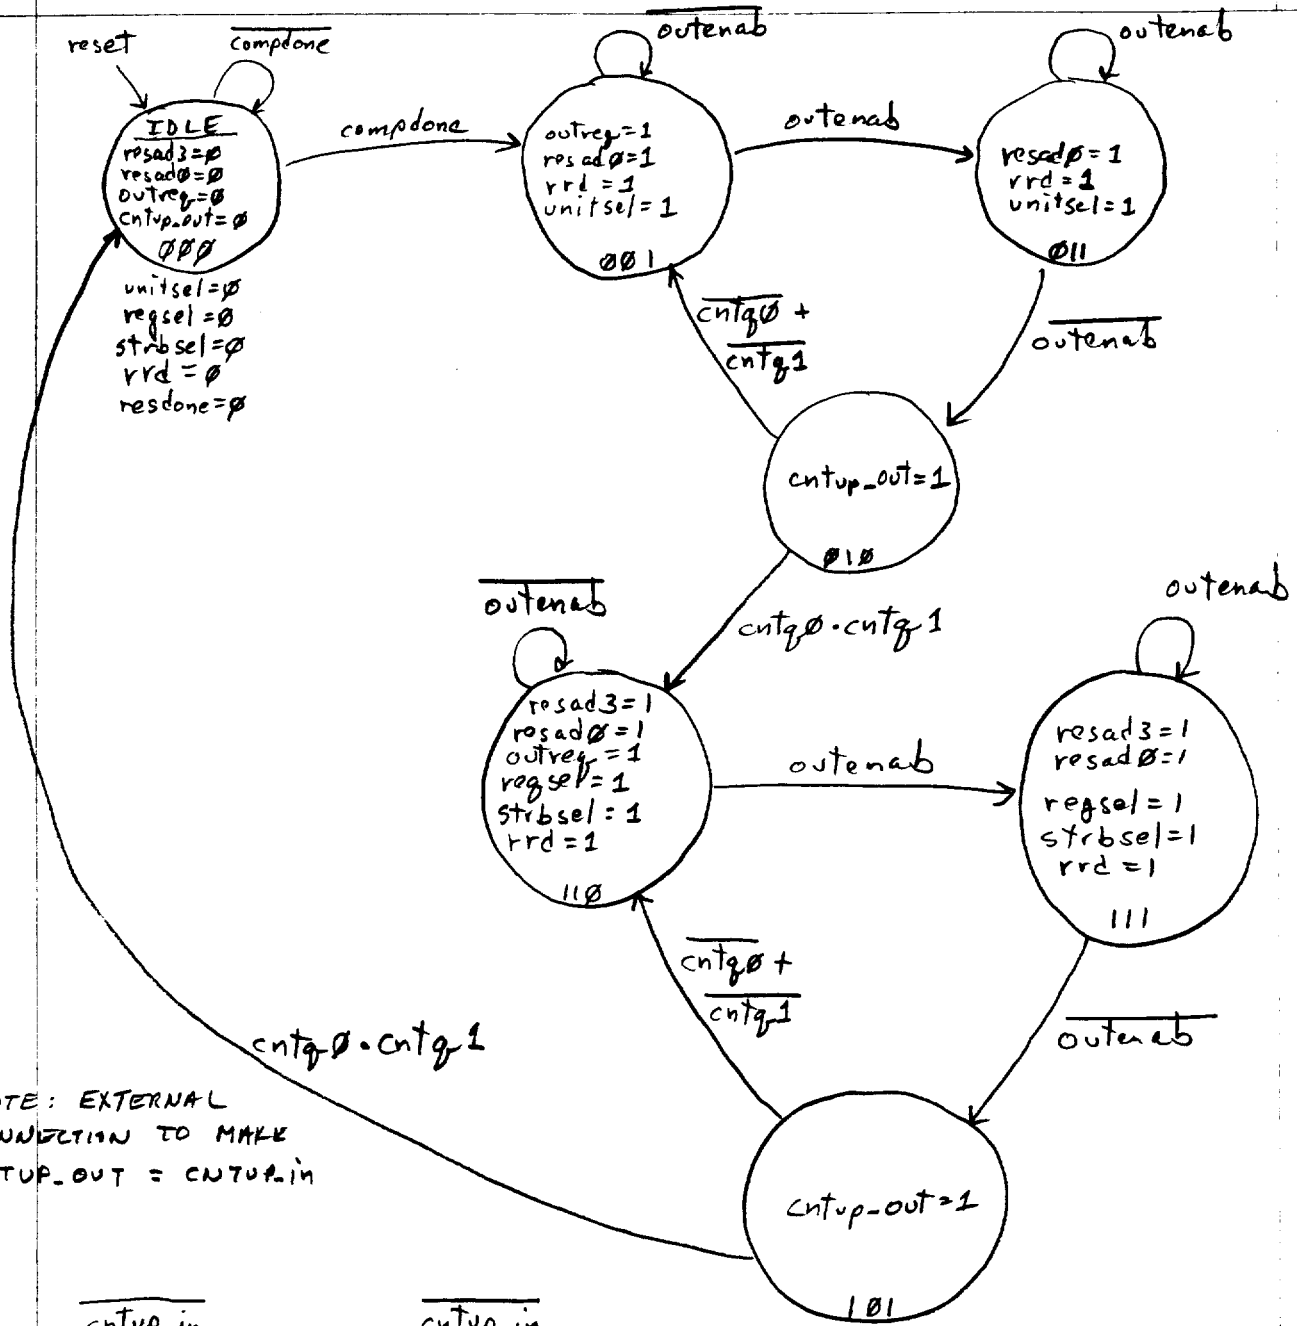 reset
compdone
IDLE
resad3=ø
resadø=ø
outreq=ø
cntup_out=ø
øøø
unitsel=ø
regsel=ø
strbsel=ø
rrd=ø
resdone=ø
compdone
outenab
outreq=1
resadø=1
rrd=1
unitsel=1
øø1
outenab
outenab
resadø=1
rrd=1
unitsel=1
ø11
cntqø +
cntq1
outenab
cntup_out=1
ø1ø
outenab
cntqø·cntq1
outenab
resad3=1
resadø=1
outreq=1
regsel=1
strbsel=1
rrd=1
11ø
outenab
resad3=1
resadø=1
regsel=1
strbsel=1
rrd=1
111
cntqø +
cntq1
outenab
cntqø·cntq1
OTE: EXTERNAL
ONNECTION TO MAKE
TUP_OUT = CNTUP_in
cntup_out=1
1ø1
cntup_in
cntup_in